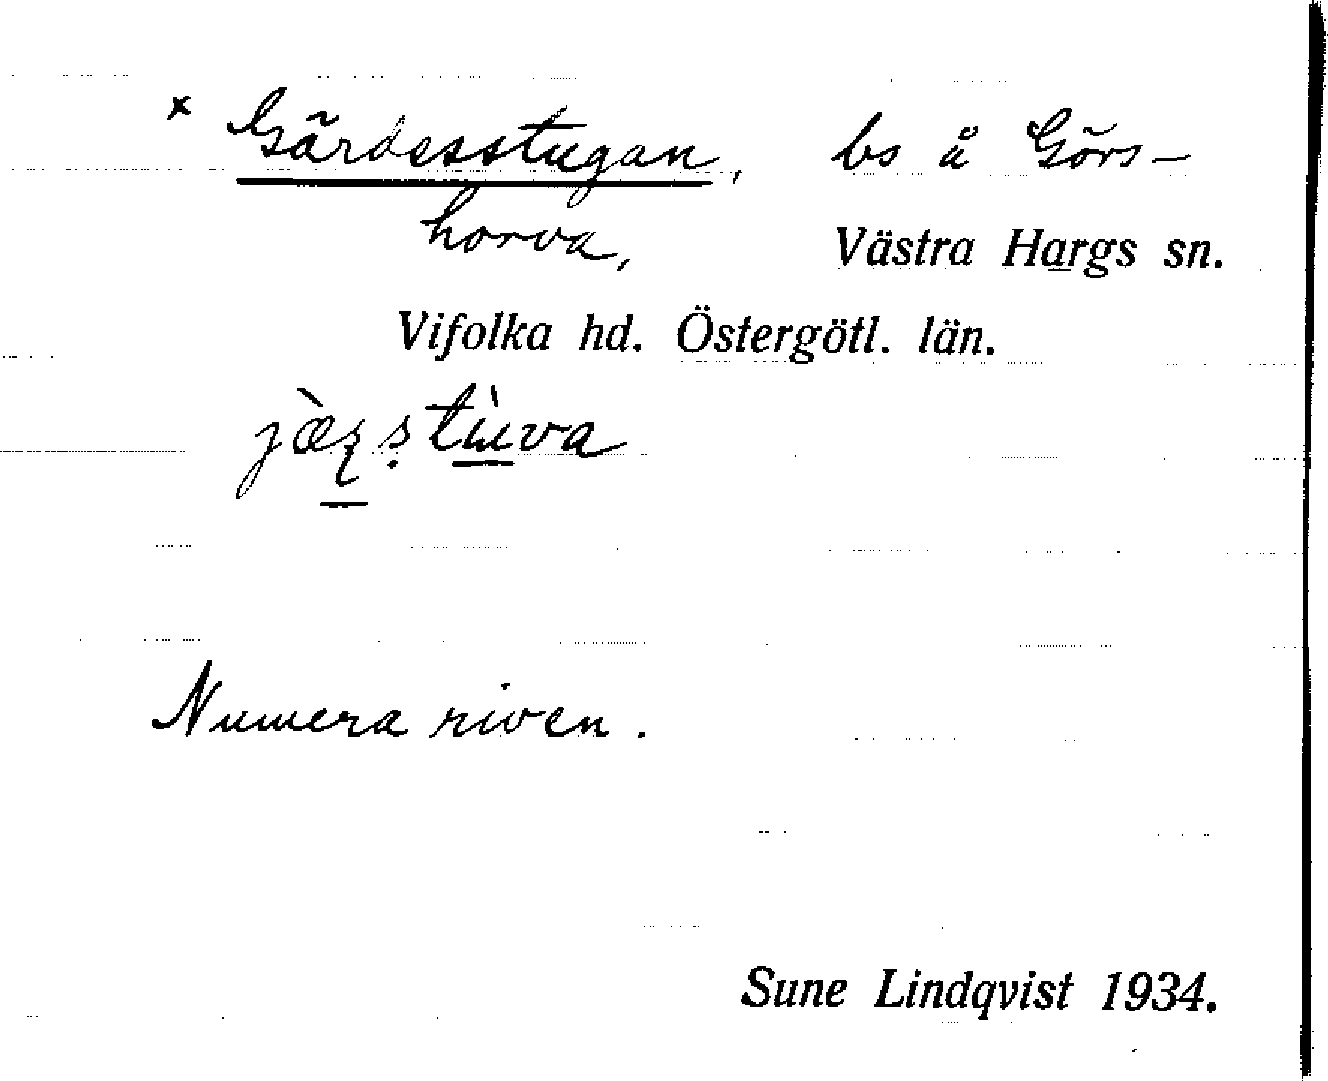 x Gärdesstugan, bs å Görs-
horva, Västra Hargs sn.
Vifolka hd. Östergötl. län.
Numera riven.
Sune Lindqvist 1934.